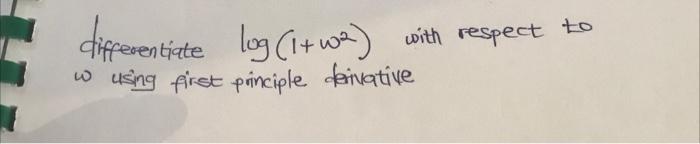 differentiate log(1+w²) with respect to
w using first principle derivative